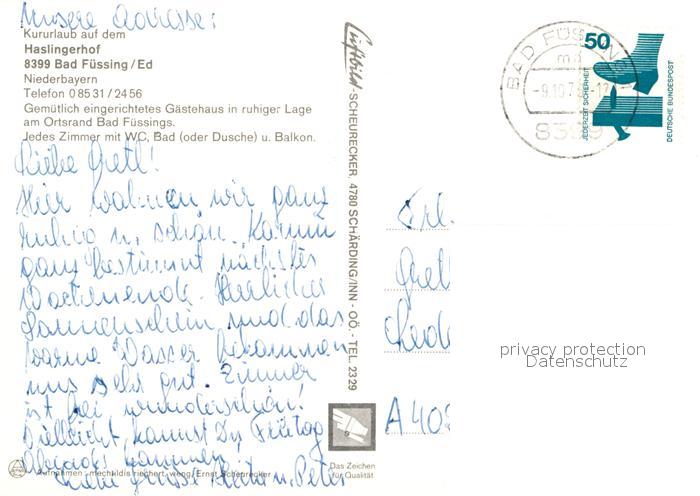 Unsere Adresse:
Kururlaub auf dem
Haslingerhof
8399 Bad Füssing/Ed
Niederbayern
Telefon 0 85 31 / 24 56
Gemütlich eingerichtetes Gästehaus in ruhiger Lage
am Ortsrand Bad Füssings.
Jedes Zimmer mit WC, Bad (oder Dusche) u. Balkon.
Liebe Gretl!
Hier wohnen wir ganz
ruhig u. schön. Komm
ganz bestimmt nächstes
Wochenende. Herrlicher
Sonnenschein und das
warme Wasser bekommen
uns sehr gut. Zimmer
ist frei, wunderschön!
Vielleicht kannst Du Freitag
Abends kommen,
Aufnahmen: mechtildis riechert-weng, Ernst Scheurecker
Liebe Grüße Herta u. Peter
Luftbild-SCHEURECKER, 4780 SCHÄRDING/INN - OÖ. - TEL. 23 29
Das Zeichen
für Qualität
BAD FÜSSING
8399
50
JEDERZEIT SICHERHEIT
DEUTSCHE BUNDESPOST
Frl.
Gretl
A 40
privacy protection
Datenschutz